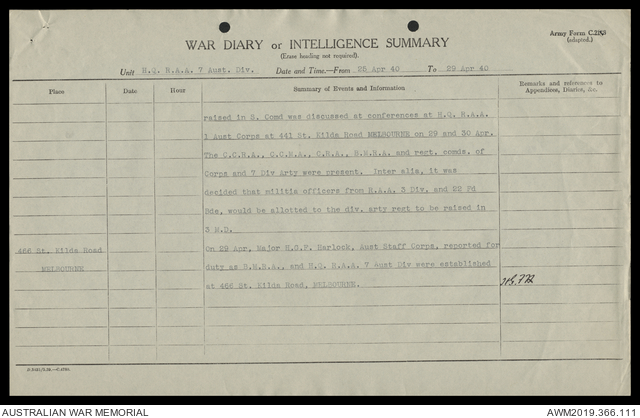 Army Form C.2118
(adapted.)
WAR DIARY or INTELLIGENCE SUMMARY
(Erase heading not required).
Unit H.Q. R.A.A. 7 Aust. Div. Date and Time.—From 25 Apr 40 To 29 Apr 40
Place Date Hour Summary of Events and Information Remarks and references to Appendices, Diaries, &c.
raised in S. Comd was discussed at conferences at H.Q. R.A.A.
1 Aust Corps at 441 St. Kilda Road MELBOURNE on 29 and 30 Apr.
The C.C.R.A., C.C.M.A., C.R.A., B.M.R.A. and regt. comds. of
Corps and 7 Div Arty were present. Inter alia, it was
decided that militia officers from R.A.A. 3 Div. and 22 Fd
Bde, would be allotted to the div. arty regt to be raised in
3 M.D.
466 St. Kilda Road On 29 Apr, Major H.G.F. Harlock, Aust Staff Corps, reported for
MELBOURNE duty as B.M.R.A., and H.Q. R.A.A. 7 Aust Div were established
at 466 St. Kilda Road, MELBOURNE.
AUSTRALIAN WAR MEMORIAL AWM2019.366.111